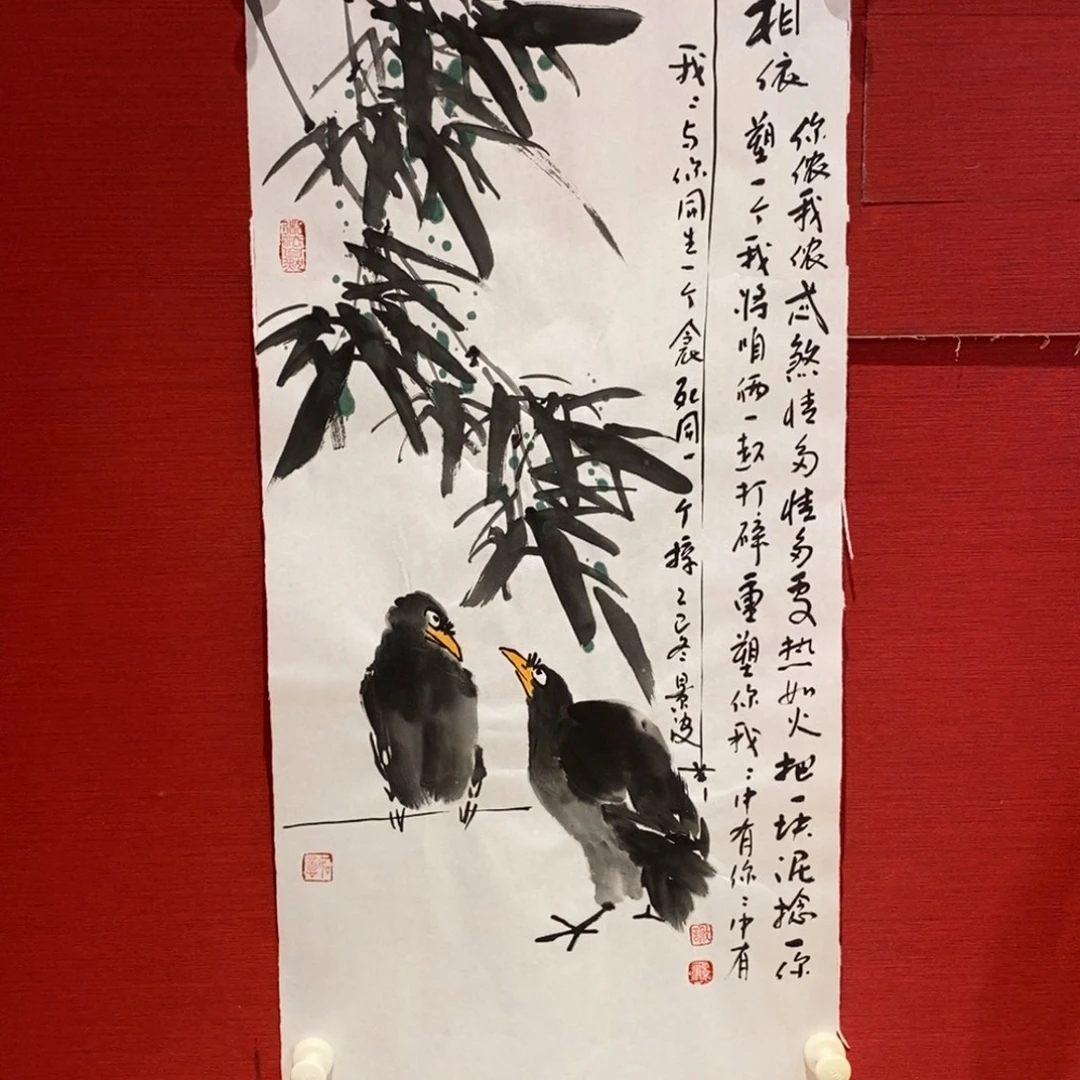 相依
你侬我侬忒煞情多情多处热如火把一块泥捻一你
塑一个我将咱俩一起打碎重塑你我〻中有你〻中有
我〻与你同生一个衾死同一个椁乙巳冬景波